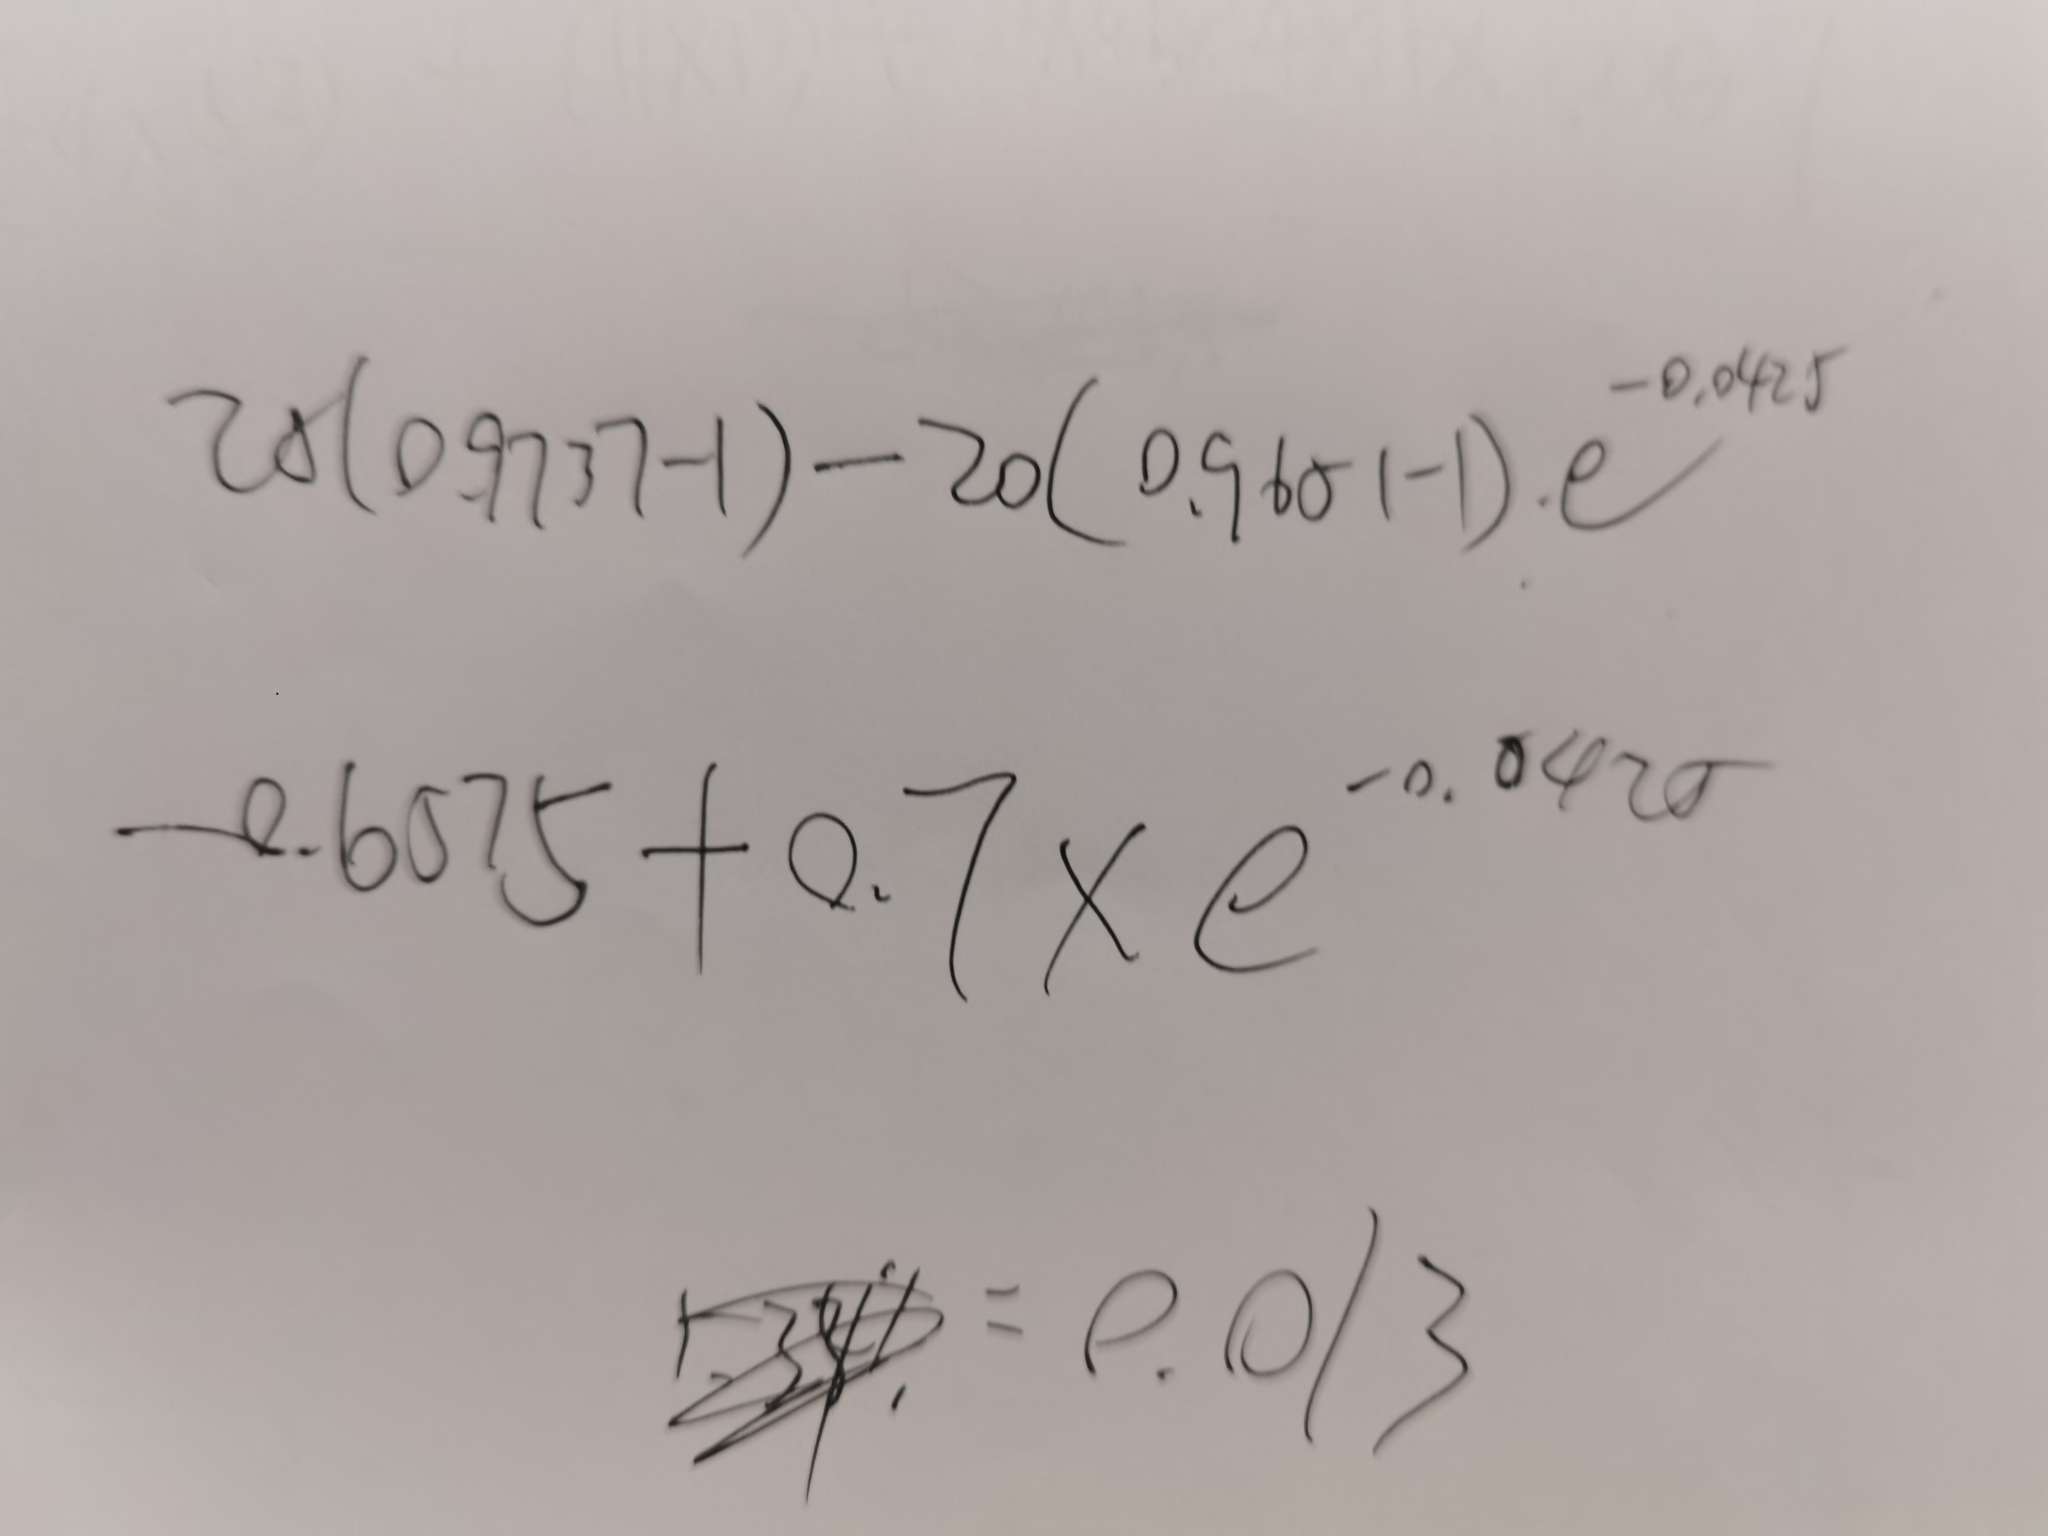 25(0.9737-1)-20(0.9651-1)·e^-0.0425
-0.6575+0.7×e^-0.0425
=0.013